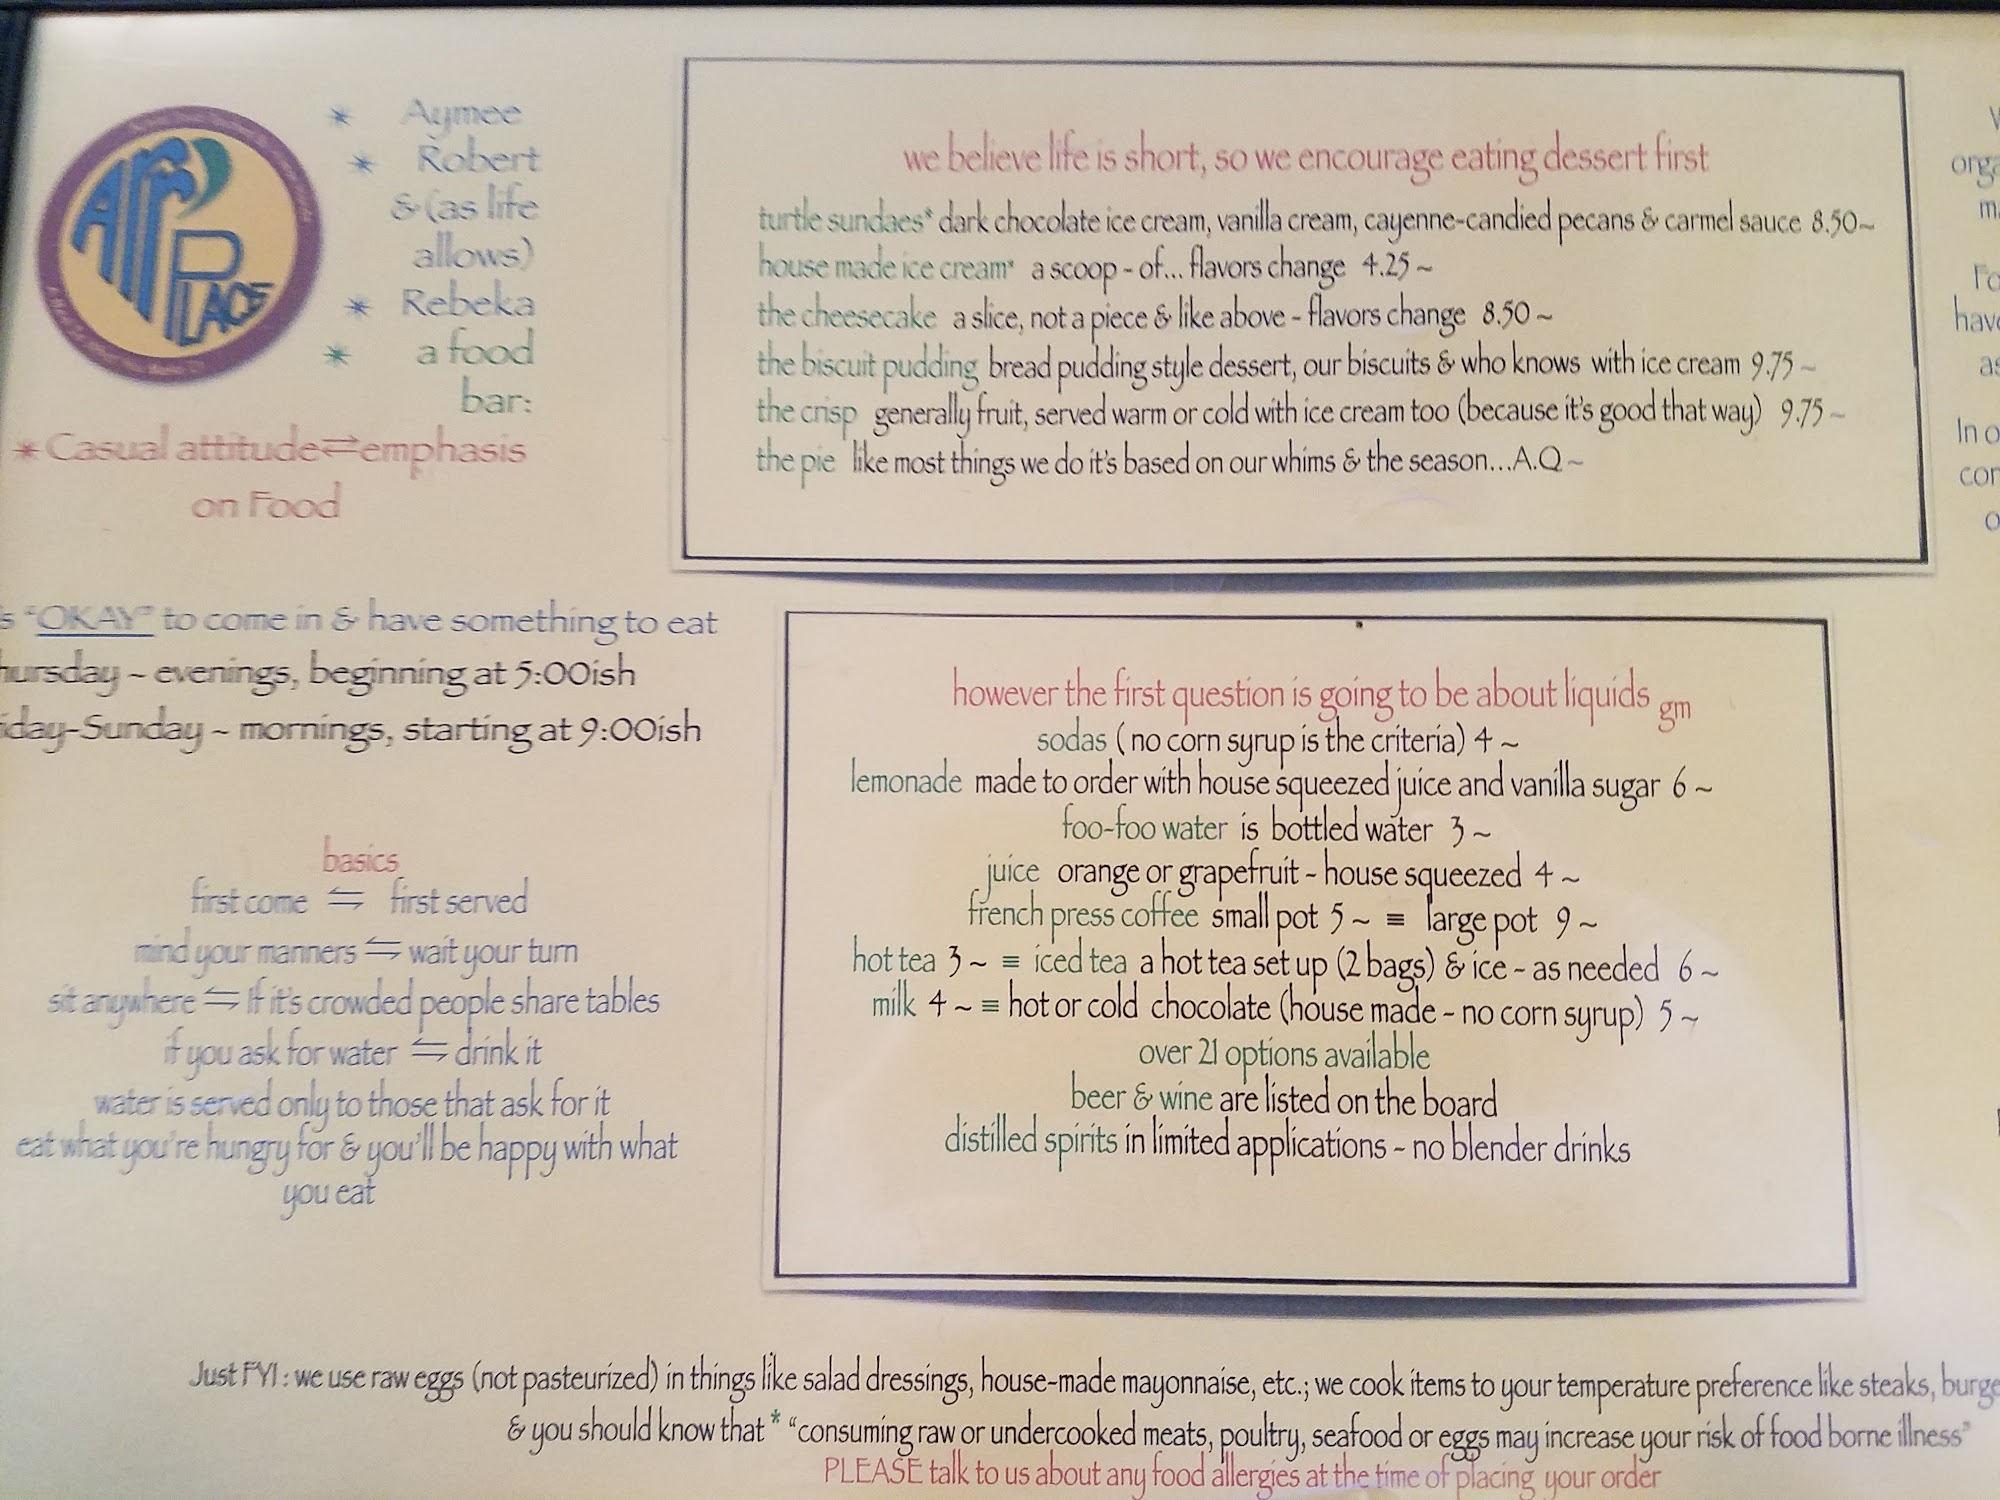 ARr'
PLACE
* Aymee
* Robert
& (as life
allows)
* Rebeka
* a food
bar:
* Casual attitude⇌emphasis
on Food
s "OKAY" to come in & have something to eat
hursday ~ evenings, beginning at 5:00ish
iday-Sunday ~ mornings, starting at 9:00ish
basics
first come ⇋ first served
mind your manners ⇋ wait your turn
sit anywhere ⇋ If it's crowded people share tables
if you ask for water ⇋ drink it
water is served only to those that ask for it
eat what you're hungry for & you'll be happy with what
you eat
we believe life is short, so we encourage eating dessert first
turtle sundaes* dark chocolate ice cream, vanilla cream, cayenne-candied pecans & carmel sauce 8.50~
house made ice cream* a scoop - of... flavors change 4.25 ~
the cheesecake a slice, not a piece & like above - flavors change 8.50 ~
the biscuit pudding bread pudding style dessert, our biscuits & who knows with ice cream 9.75 ~
the crisp generally fruit, served warm or cold with ice cream too (because it's good that way) 9.75 ~
the pie like most things we do it's based on our whims & the season...A.Q ~
however the first question is going to be about liquids gm
sodas ( no corn syrup is the criteria) 4 ~
lemonade made to order with house squeezed juice and vanilla sugar 6 ~
foo-foo water is bottled water 3 ~
juice orange or grapefruit - house squeezed 4 ~
french press coffee small pot 5 ~ ≡ large pot 9 ~
hot tea 3 ~ ≡ iced tea a hot tea set up (2 bags) & ice - as needed 6 ~
milk 4 ~ ≡ hot or cold chocolate (house made - no corn syrup) 5 ~
over 21 options available
beer & wine are listed on the board
distilled spirits in limited applications - no blender drinks
orga
m
Fo
have
as
In o
cor
o
Just FYI : we use raw eggs (not pasteurized) in things like salad dressings, house-made mayonnaise, etc.; we cook items to your temperature preference like steaks, burge
& you should know that * "consuming raw or undercooked meats, poultry, seafood or eggs may increase your risk of food borne illness"
PLEASE talk to us about any food allergies at the time of placing your order